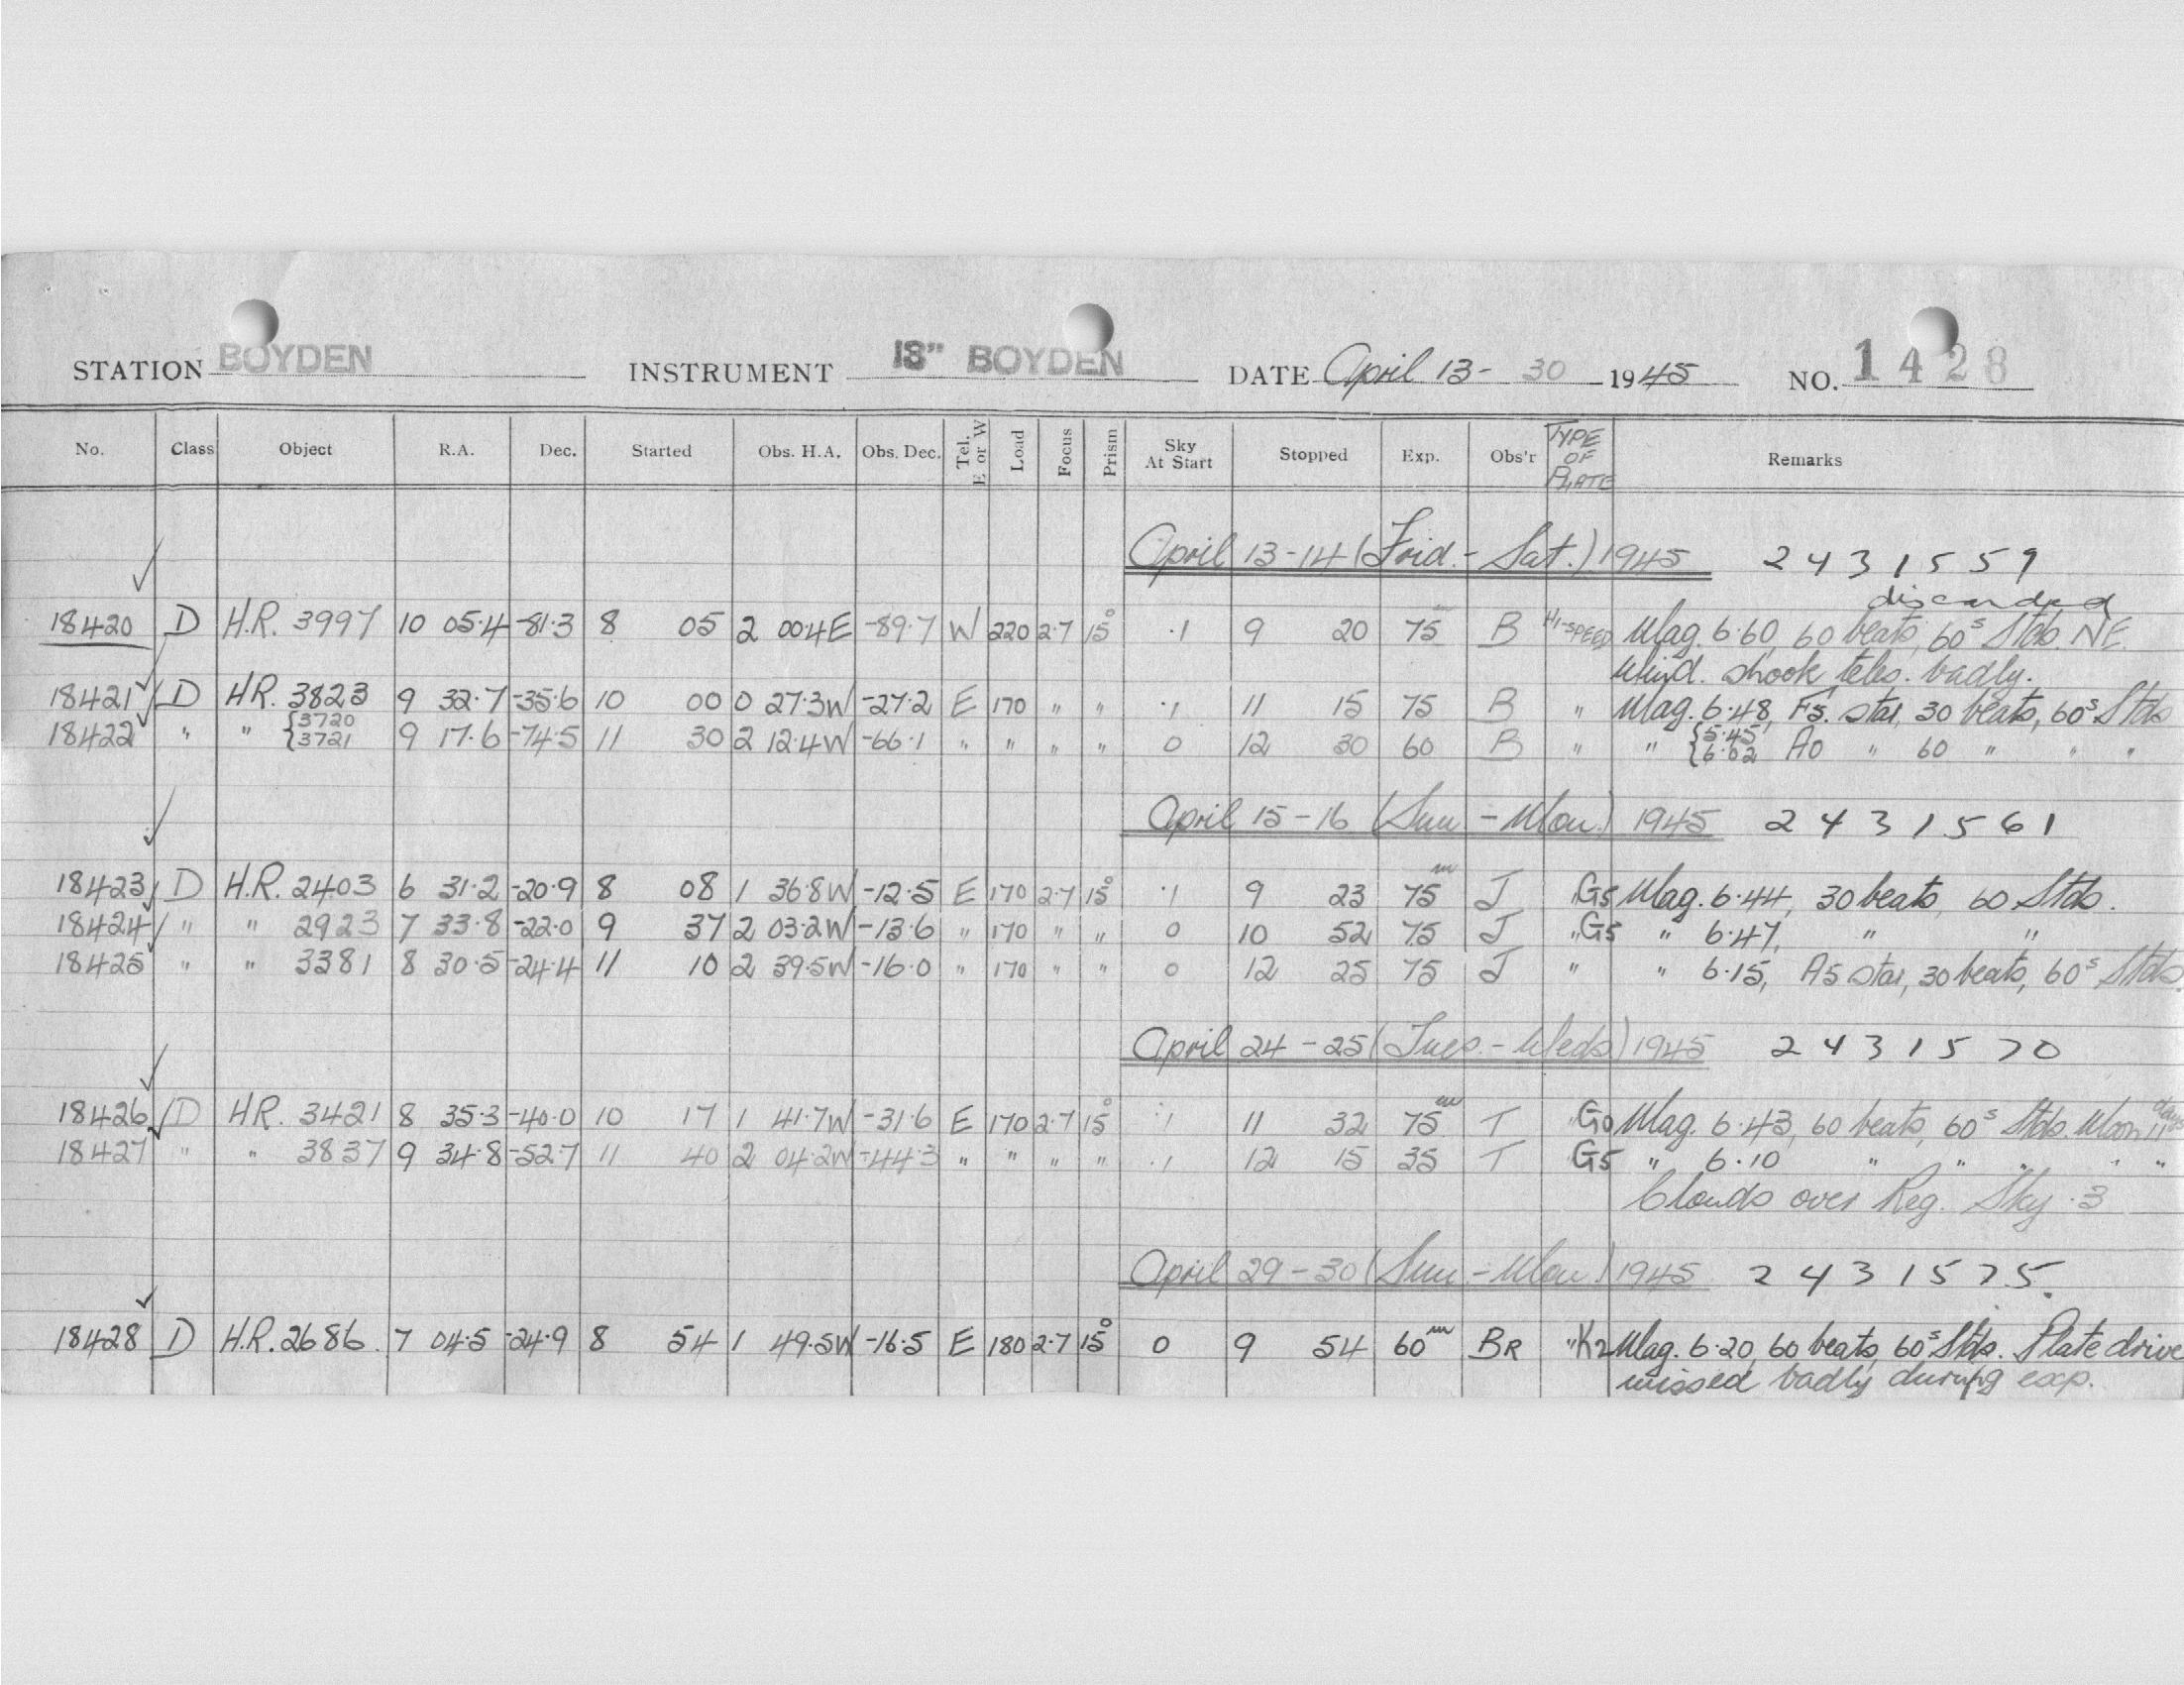 STATION BOYDEN INSTRUMENT 13" BOYDEN DATE April 13 - 30 1945 NO. 1428
No. Class Object R.A. Dec. Started Obs. H.A. Obs. Dec. Tel. E or W Load Focus Prism Sky At Start Stopped Exp. Obs'r TYPE OF PLATE Remarks
April 13-14 (Frid. - Sat.) 1945 2431559
discarded
18420 D H.R. 3997 10 05.4 -81.3 8 05 2 00.4E -89.7 W 220 2.7 15° .1 9 20 75m B HI-SPEED Mag. 6.60, 60 beats, 60s Stds. NE
Wind. shook teles. badly.
18421 D HR. 3823 9 32.7 -35.6 10 00 0 27.3W -27.2 E 170 " " .1 11 15 75 B " Mag. 6.48, F5. star, 30 beats, 60s Stds
18422 " " {3720 3721 9 17.6 -74.5 11 30 2 12.4W -66.1 " " " " 0 12 30 60 B " " {5.45 6.02 A0 " 60 " " "
April 15-16 (Sun - Mon) 1945 2431561
18423 D H.R. 2403 6 31.2 -20.9 8 08 1 36.8W -12.5 E 170 2.7 15° .1 9 23 75m J " G5 Mag. 6.44, 30 beats, 60 Stds.
18424 " " 2923 7 33.8 -22.0 9 37 2 03.2W -13.6 " 170 " " 0 10 52 75 J " G5 " 6.47, " "
18425 " " 3381 8 30.5 -24.4 11 10 2 39.5W -16.0 " 170 " " 0 12 25 75 J " " 6.15, A5 star, 30 beats, 60s Stds.
April 24-25 (Tues. - Weds) 1945 2431570
18426 D HR. 3421 8 35.3 -40.0 10 17 1 41.7W -31.6 E 170 2.7 15° .1 11 32 75m T " G0 Mag. 6.43, 60 beats, 60s Stds. Moon 11 days
18427 " " 3837 9 34.8 -52.7 11 40 2 04.2W -44.3 " " " " .1 12 15 35 T " G5 " 6.10 " " " " "
Clouds over Reg. Sky .3
April 29-30 (Sun. - Mon.) 1945 2431575.
18428 D H.R. 2686 7 04.5 -24.9 8 54 1 49.5W -16.5 E 180 2.7 15° 0 9 54 60m BR " K2 Mag. 6.20, 60 beats, 60s Stds. Plate drive
missed badly during exp.